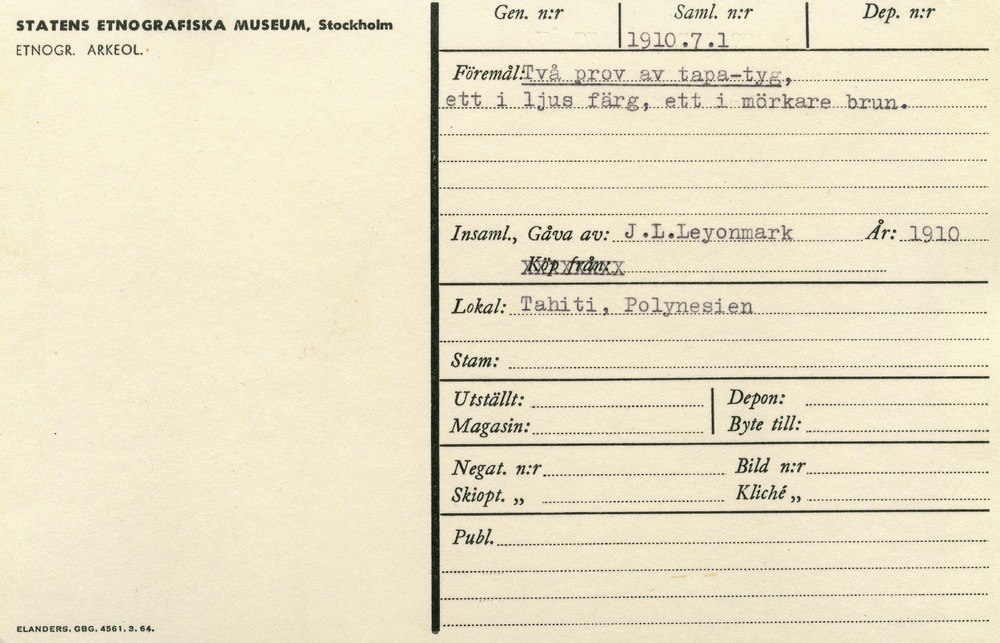 STATENS ETNOGRAFISKA MUSEUM, Stockholm
ETNOGR. ARKEOL.
Gen. n:r Saml. n:r Dep. n:r
1910.7.1
Föremål: Två prov av tapa-tyg,
ett i ljus färg, ett i mörkare brun.
Insaml., Gåva av: J.L.Leyonmark År: 1910
Köp från:
Lokal: Tahiti, Polynesien
Stam:
Utställt: Depon:
Magasin: Byte till:
Negat. n:r Bild n:r
Skiopt. „ Kliché „
Publ.
ELANDERS. GBG. 4561. 3. 64.